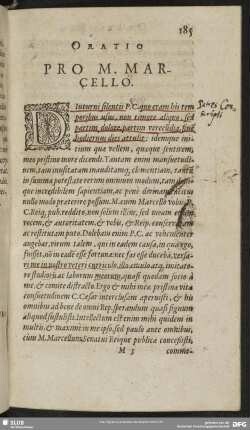 185
ORATIO
PRO M. MAR-
CELLO.
Diuturni silentii P. C. quo eram his tem
poribus usus, non timore aliquo, sed
partim dolore, partim verecundia, finē
hodiernus dies attulit: idemque ini-
tium quæ vellem, quæque sentirem,
meo pristino more dicendi. Tantam enim mansuetudi-
nem, tam inusitatam inauditamq; clementiam, tantū
in summa potestate rerum omnium modum, tam deni-
que incredibilem sapientiam, ac penè divinam tacitus
nullo modo præterire possum. M. enim Marcello vobis P.
C. Reiq. pub. reddito, non solùm illius, sed meam etiam
vocem, & auctoritatem, & vobis, & Reip. conservatam
ac restitutam puto. Dolebam enim P. C. ac vehementer
angebar, virum talem, qui in eadem causa, in qua ego,
fuisset, nō in eadē esse fortuna: nec fas esse ducebā, versa-
ri me in nostro veteri curriculo, illo æmulo atq; imitato-
re studiorū ac laborum meorum, quasi quodam socio à
me, & comite distracto. Ergo & mihi meæ pristinæ vitæ
consuetudinem C. Cæsar interclusam aperuisti, & his
omnibus ad bene de omni Reip. sperandum quasi signum
aliquod sustulisti. Intellectum est enim mihi quidem in
multis, & maximè in me ipso, sed paulo antè omnibus,
cùm M. Marcellum Senatui Reique publicæ concessisti,
M 3
comme-
Patres Con
scripti
SLUB